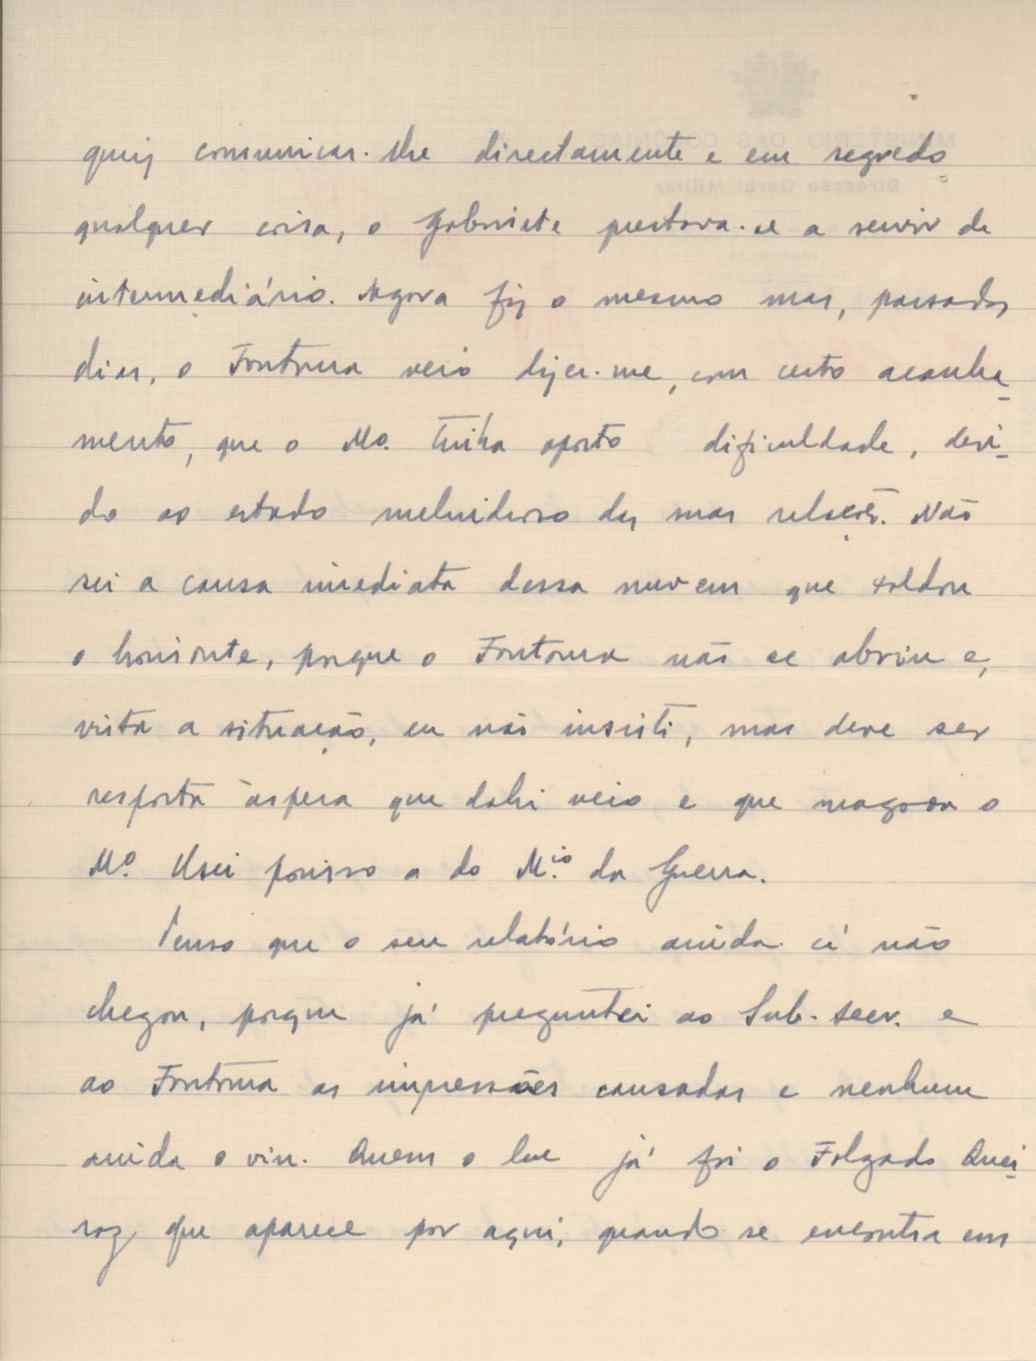 quiz comunicar-lhe directamente e em segredo
qualquer coisa, o Gabinete prestava-se a servir de
intermediário. Agora fiz o mesmo mas, passados
dias, o Fontoura veio dizer-me, com certo acanha-
mento, que o Mo. tinha oposto dificuldade, devi-
do ao estado melindroso das suas relações. Não
sei a causa imediata dessa nuvem que toldou
o horisonte, porque o Fontoura não se abriu e,
vista a situação, eu não insisti, mas deve ser
resposta áspera que dahi veio e que magoou o
Mo. Usei porisso a do M.io da Guerra.
Penso que o seu relatório ainda cá não
chegou, porque já preguntei ao Sub-Secr. e
ao Fontoura as impressões causadas e nenhum
ainda o viu. Quem o leu já foi o Folgado Quei-
roz que aparece por aqui, quando se encontra em